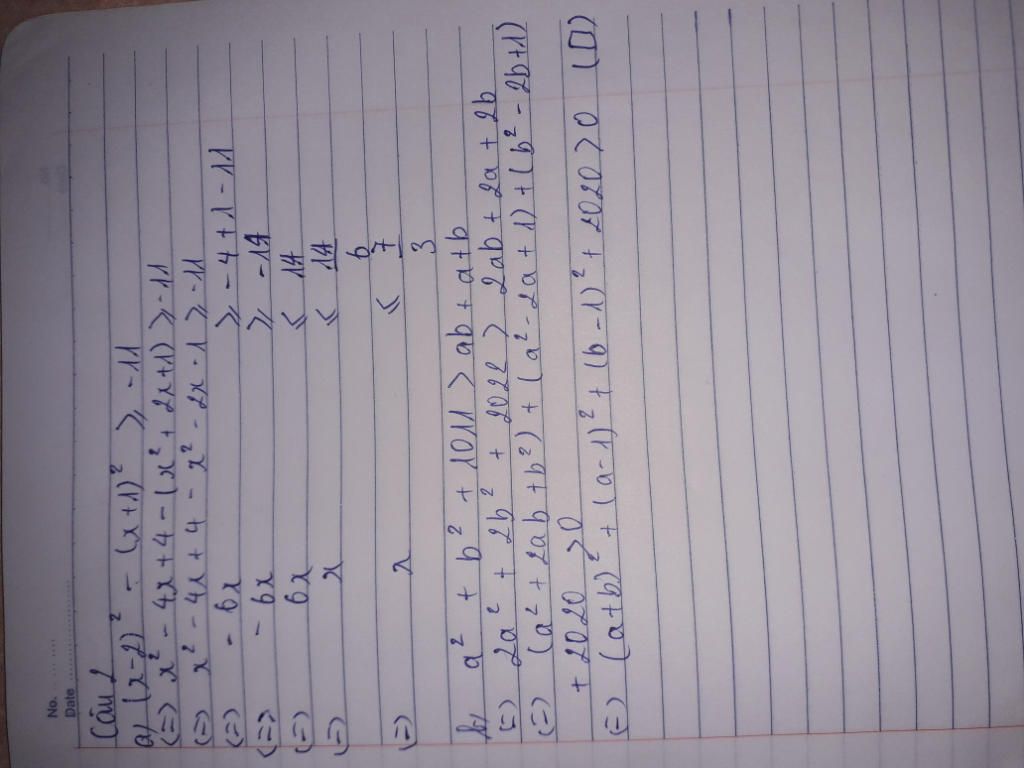 No. ... ....
Date ........................
Câu 2
a) (x-2)² - (x+1)² ≥ -11
(=) x² - 4x + 4 - (x² + 2x+1) ≥ -11
(=) x² - 4x + 4 - x² - 2x - 1 ≥ -11
(=) - 6x ≥ - 4 + 1 - 11
(=) - 6x ≥ - 14
(=) 6x ≤ 14
(=) x ≤ 14/6
(=) x ≤ 7/3
b, a² + b² + 1011 > ab + a+b
(=) 2a² + 2b² + 2022 > 2ab + 2a + 2b
(=) (a² + 2ab + b²) + (a² - 2a + 1) + (b² - 2b+1)
+ 2020 > 0
(=) (a+b)² + (a-1)² + (b-1)² + 2020 > 0 (D)